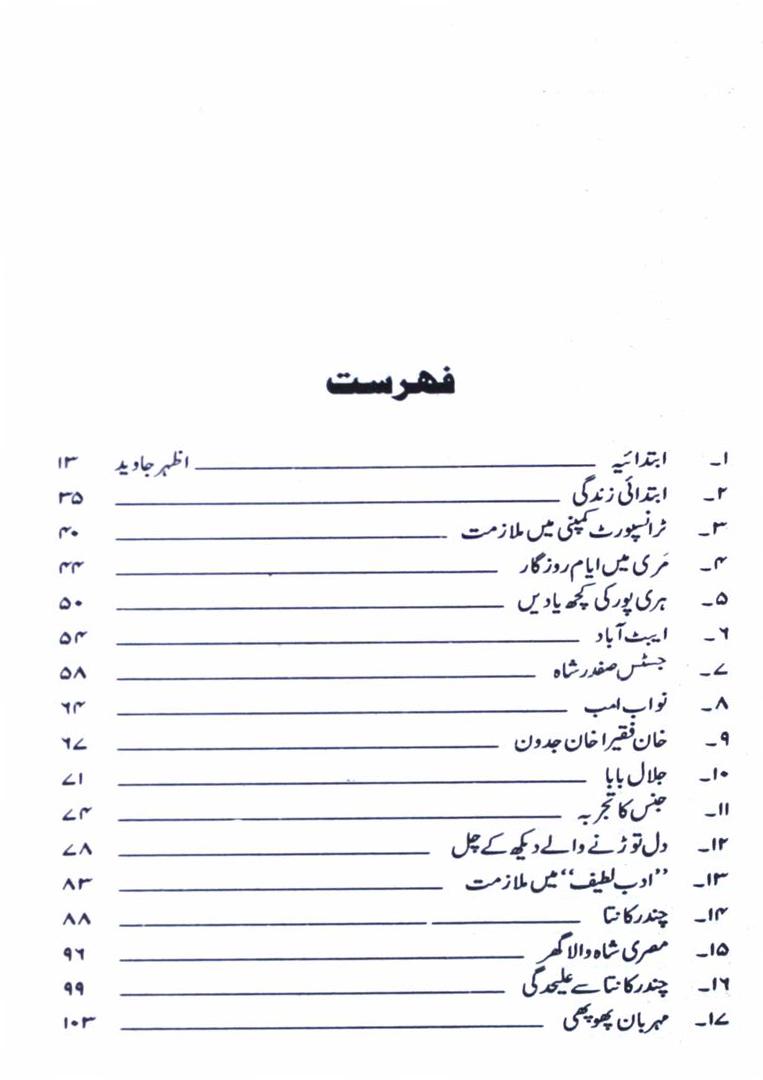 فہرست
۱۔ ابتدائیہ ــــــ اظہر جاوید ۱۳
۲۔ ابتدائی زندگی ــــــ ۳۵
۳۔ ٹرانسپورٹ کمپنی میں ملازمت ــــــ ۴۰
۴۔ مَری میں ایام روزگار ــــــ ۴۴
۵۔ ہری پور کی کچھ یادیں ــــــ ۵۰
۶۔ ایبٹ آباد ــــــ ۵۴
۷۔ جسٹس صفدر شاہ ــــــ ۵۸
۸۔ نواب امب ــــــ ۶۴
۹۔ خان فقیرا خان جدون ــــــ ۶۷
۱۰۔ جلال بابا ــــــ ۷۱
۱۱۔ جنس کا تجربہ ــــــ ۷۴
۱۲۔ دل توڑنے والے دیکھ کے چل ــــــ ۷۸
۱۳۔ ’’ادب لطیف‘‘ میں ملازمت ــــــ ۸۳
۱۴۔ چندر کانتا ــــــ ۸۸
۱۵۔ مصری شاہ والا گھر ــــــ ۹۶
۱۶۔ چندر کانتا سے علیحدگی ــــــ ۹۹
۱۷۔ مہربان پھوپھی ــــــ ۱۰۳